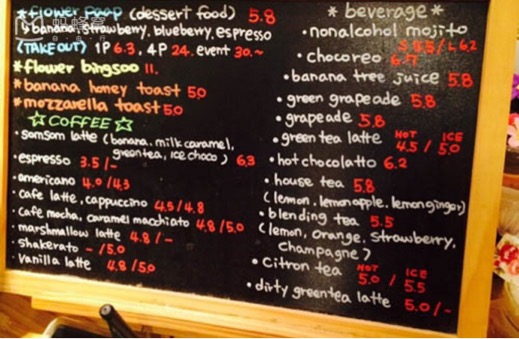 *flower poop (dessert food) 5.8
banana, strawberry, blueberry, espresso
(TAKE OUT) 1P 6.3, 4P 24. event 30.~
*flower bingsoo 11.
*banana honey toast 5.0
*mozzarella toast 5.0
☆COFFEE☆
·somsom latte (banana, milk caramel,
greentea, ice choco) 6.3
·espresso 3.5/-
·americano 4.0/4.3
·cafe latte, cappuccino 4.5/4.8
·cafe mocha, caramel macchiato 4.8/5.0
·marshmallow latte 4.8/-
·shakerato -/5.0
·vanilla latte 4.8/5.0
*beverage*
·nonalcohol mojito
/L 6.2
·chocoreo
·banana tree juice 5.8
·green grapeade 5.8
·grapeade 5.8
·green tea latte HOT 4.5 / ICE 5.0
·hot chocolatto 6.2
·house tea 5.8
(lemon, lemonapple, lemonginger)
·blending tea 5.5
(lemon, orange, strawberry,
champagne)
·citron tea HOT 5.0 / ICE 5.5
·dirty greentea latte 5.0/-